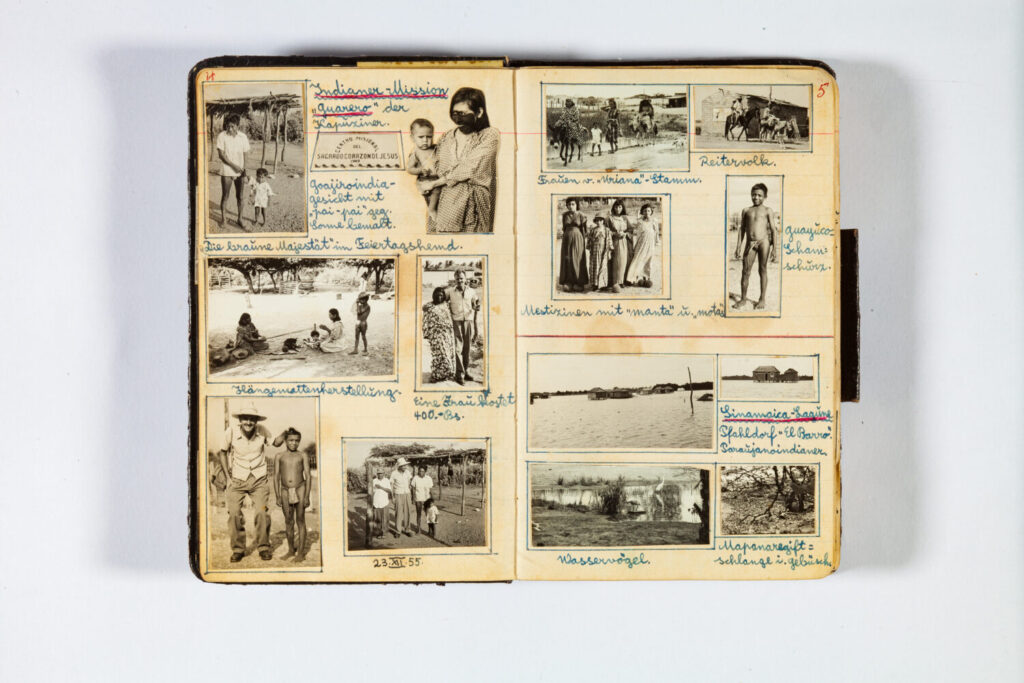 4
Indianer-Mission
„Guarero" der
Kapuziner.
CENTRO MISIONAL
DEL
SAGRADO CORAZON DE JESUS
Goajiroindia-
gesicht mit
"pai-pai" geg.
Sonne bemalt.
„Die braune Majestät" im Feiertagshemd.
Hängemattenherstellung.
Eine Frau kostet
400.-Bs.
23.XII.55.
5
Frauen v. „Uriana"-Stamm.
Reitervolk.
guayuco-
Scham-
schürz.
Mestizinen mit "manta" u. „motas
Sinamaica-Lagune
Pfahldorf "El Barro".
Paraujanoindianer.
Wasservögel.
Mapanaregift=
schlange i. gebüsch.